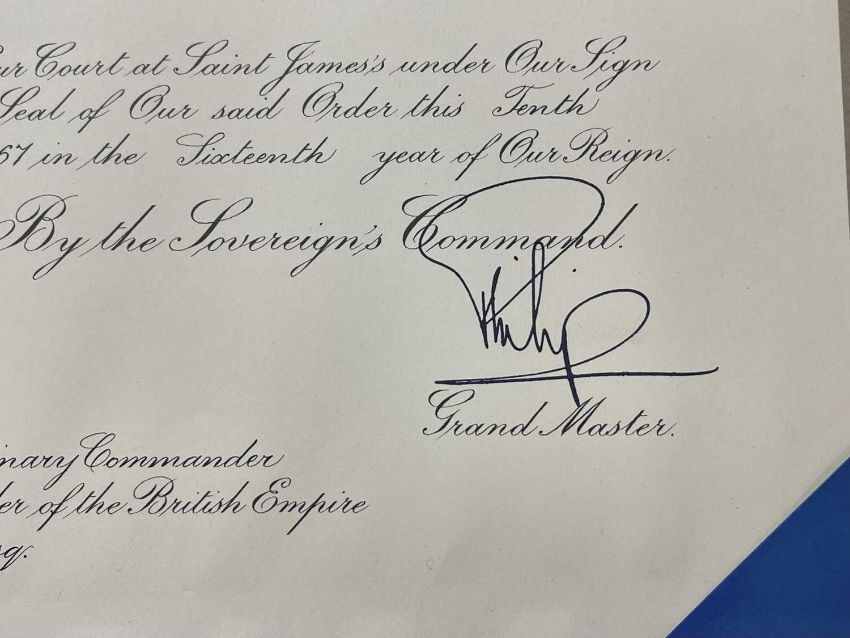 ur Court at Saint James's under Our Sign
Seal of Our said Order this Tenth
67 in the Sixteenth year of Our Reign.
By the Sovereign's Command.
Philip
Grand Master.
inary Commander
er of the British Empire
sq.